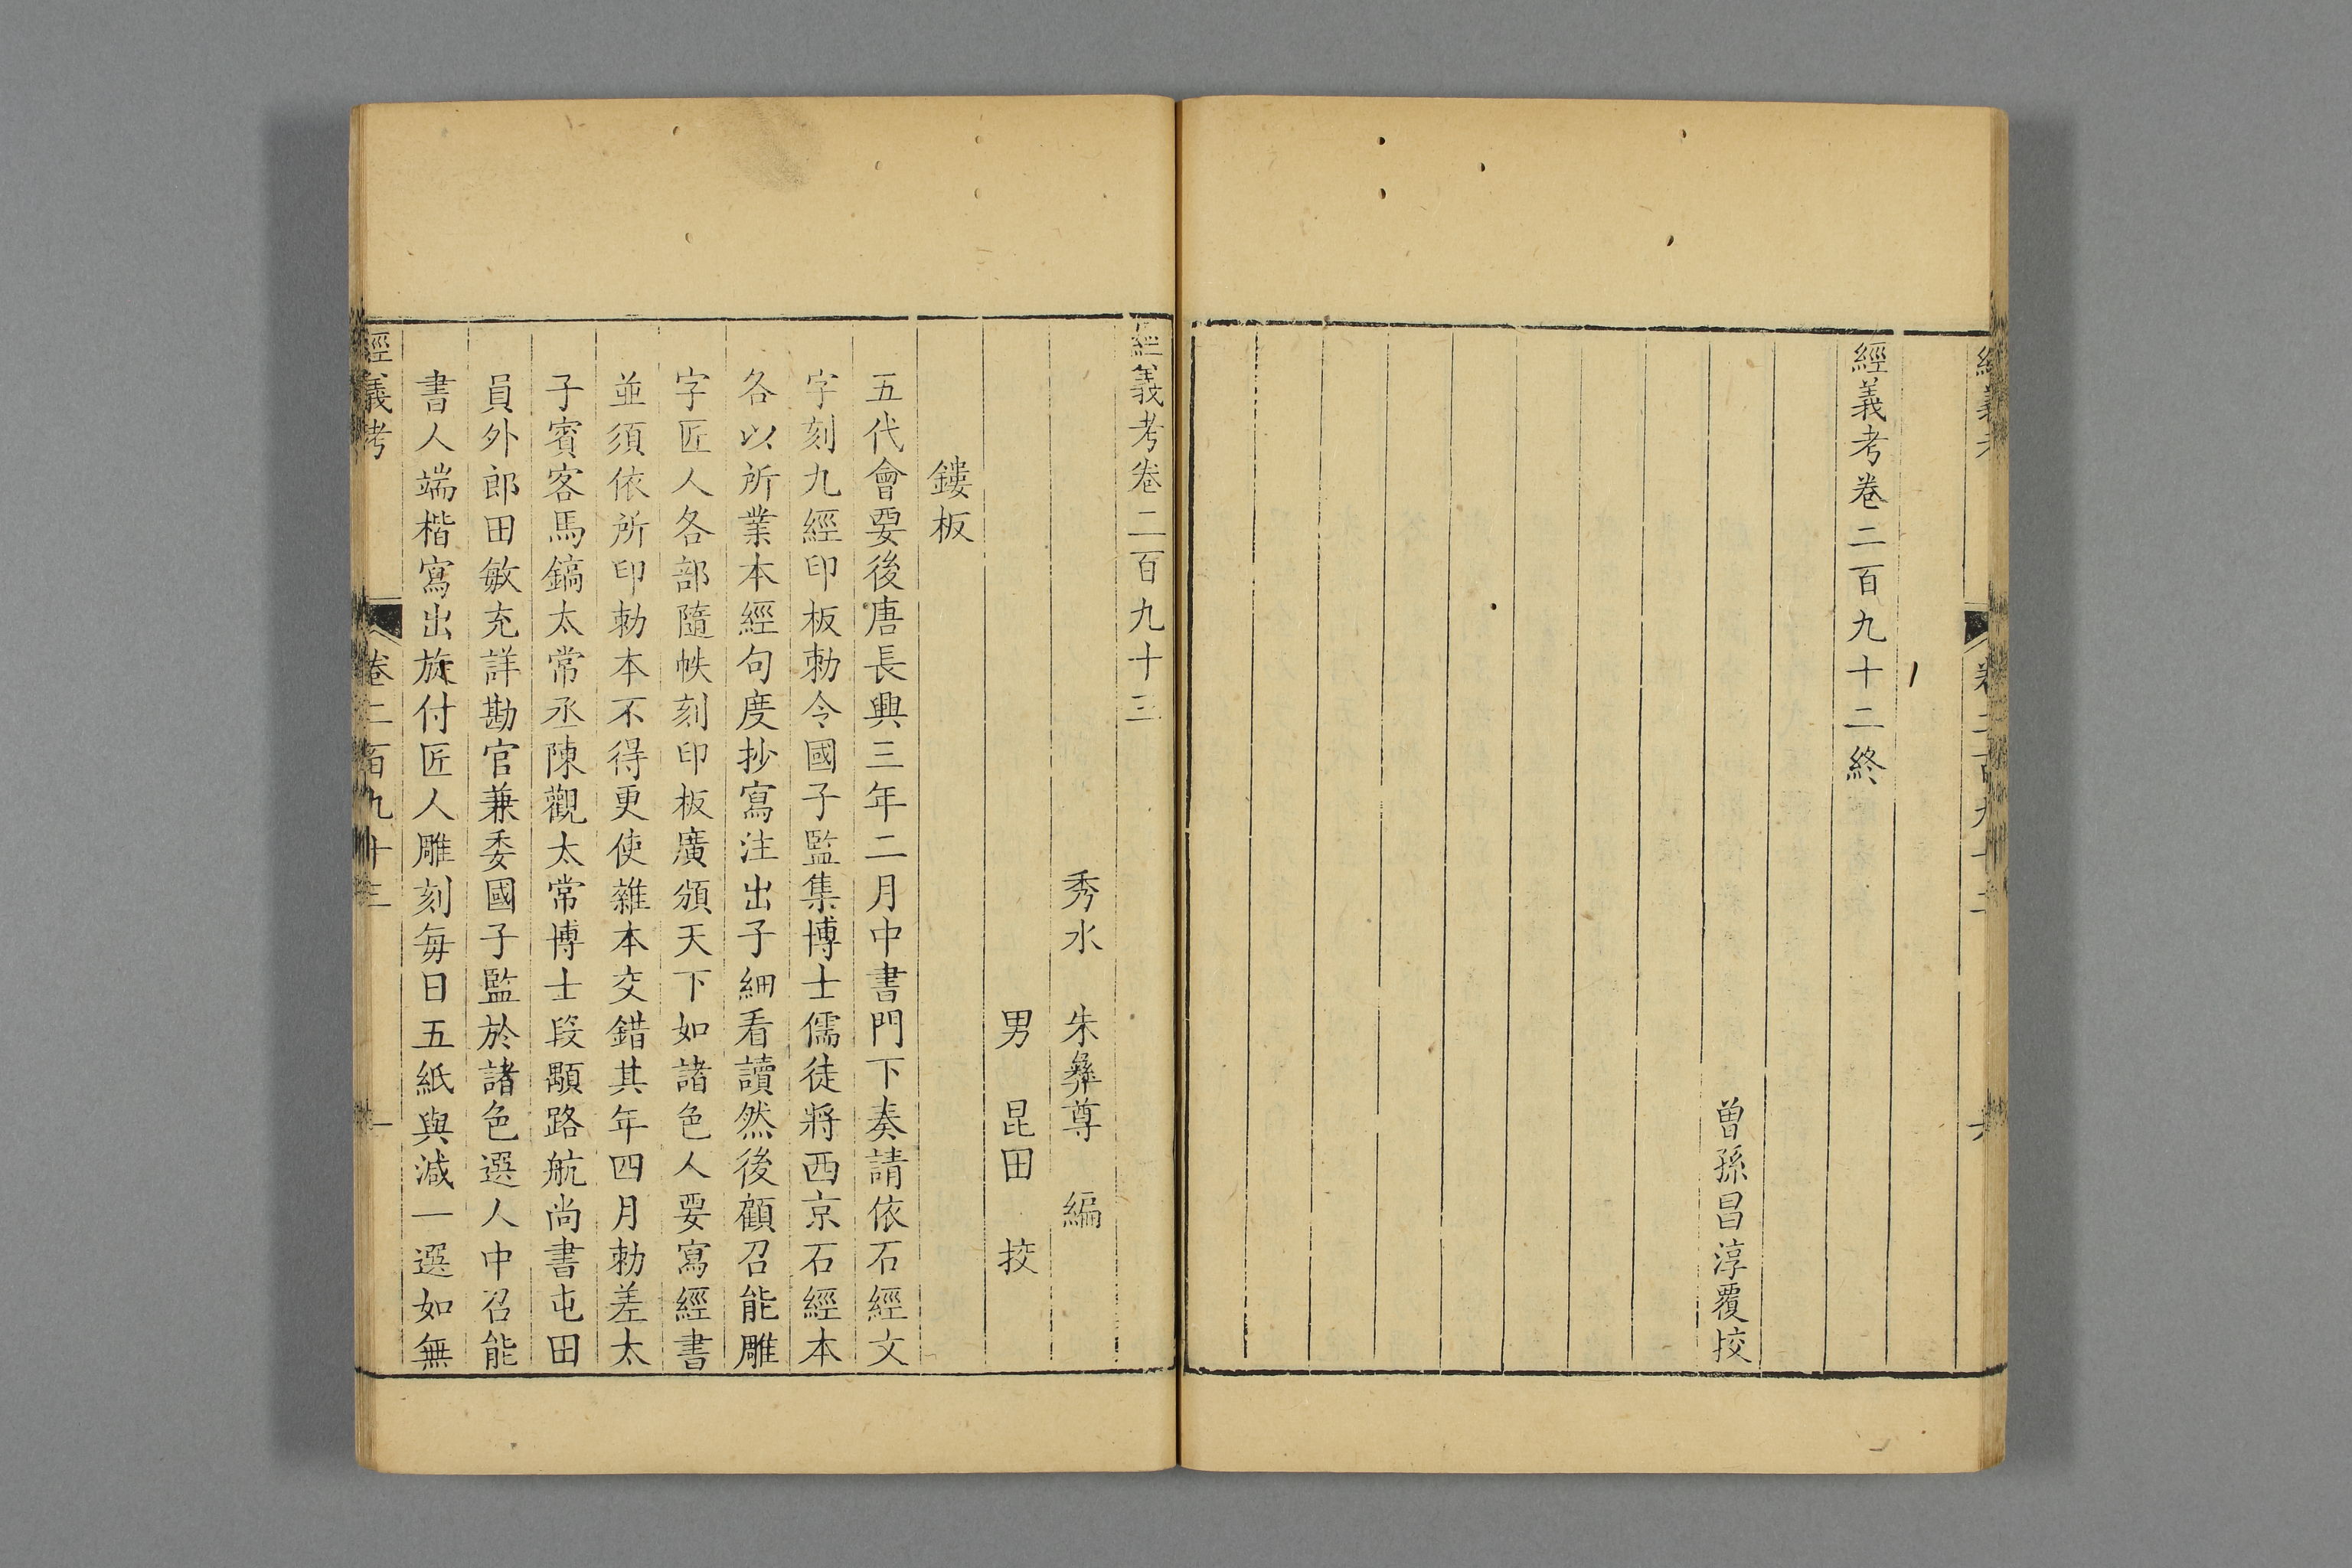 經義考卷二百九十二終
曾孫昌淳覆挍
經義考卷二百九十三
秀水　朱彝尊　編
男　昆田　挍
鏤板
五代會要後唐長興三年二月中書門下奏請依石經文
字刻九經印板勅令國子監集博士儒徒將西京石經本
各以所業本經句度抄寫注出子細看讀然後顧召能雕
字匠人各部隨帙刻印板廣頒天下如諸色人要寫經書
並須依所印勅本不得更使雜本交錯其年四月勅差太
子賓客馬鎬太常丞陳觀太常博士段顒路航尚書屯田
員外郎田敏充詳勘官兼委國子監於諸色選人中召能
書人端楷寫出旋付匠人雕刻每日五紙與減一選如無
經義考　卷二百九十三　一